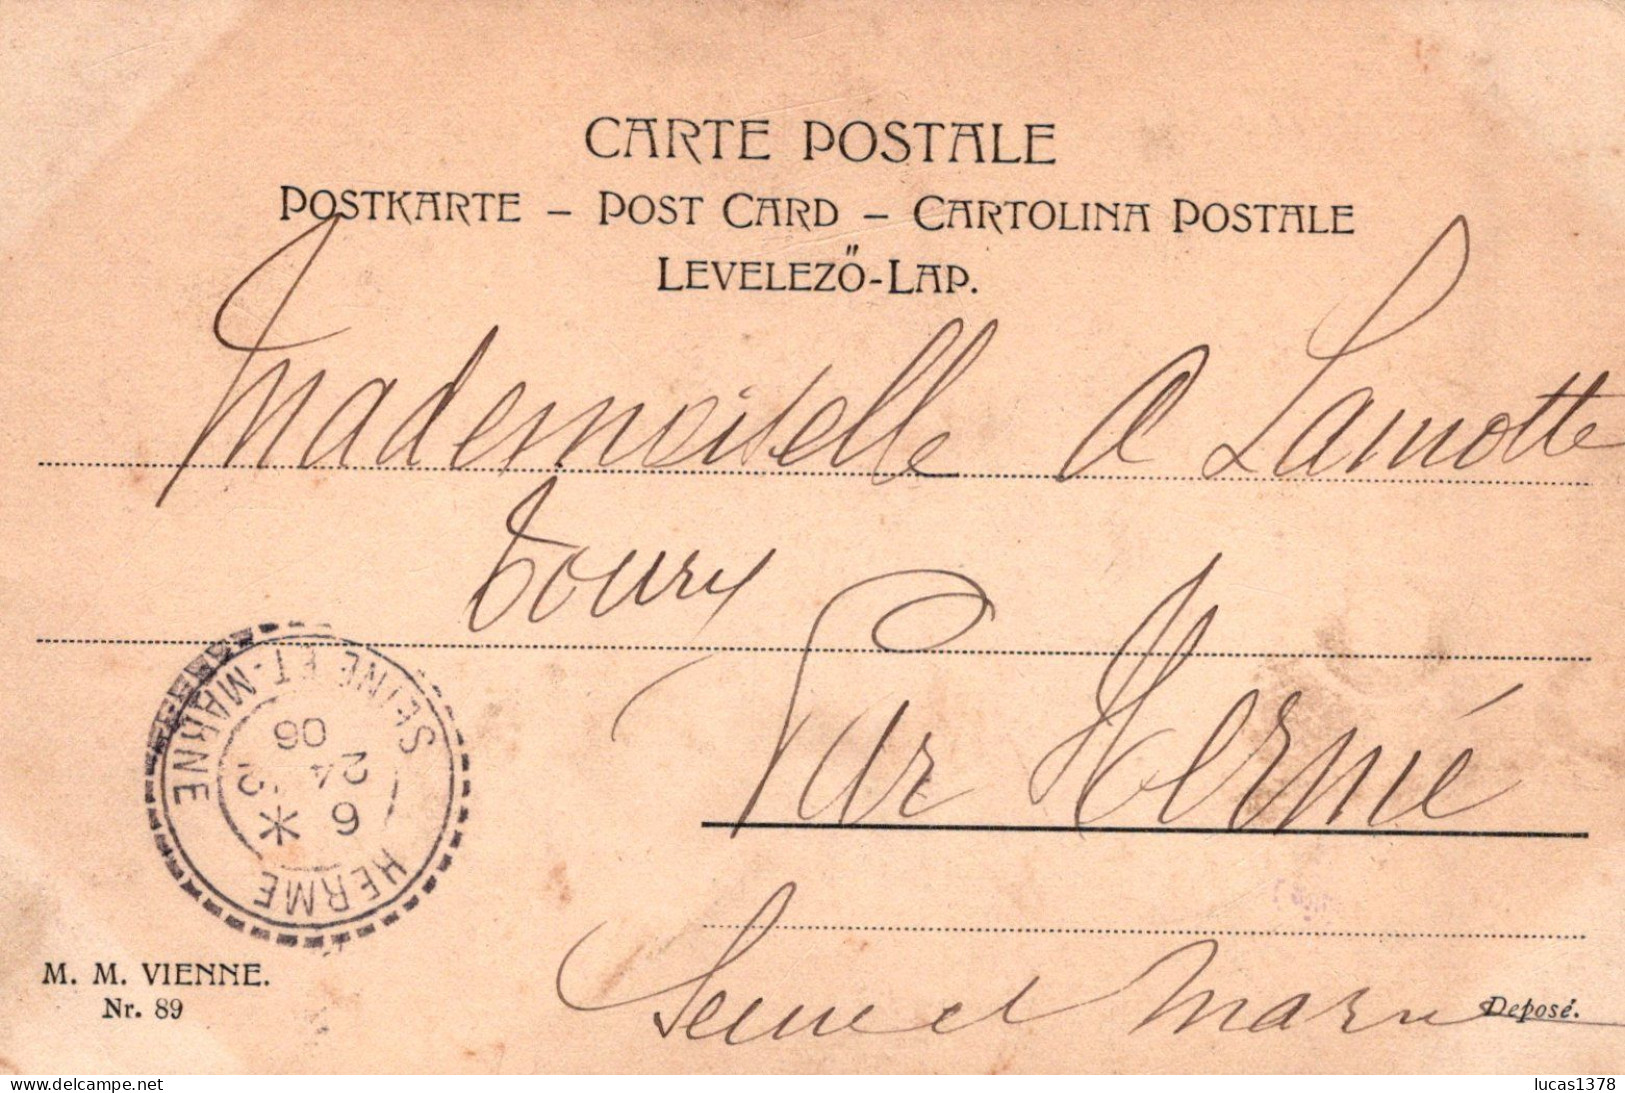 CARTE POSTALE
POSTKARTE – POST CARD – CARTOLINA POSTALE
LEVELEZŐ-LAP.
Mademoiselle A Lamotte
Toury
Par Hermé
Seine et Marne
SEINE-ET-MARNE
HERME
6
24
06
M. M. VIENNE.
Nr. 89
Deposé.
www.delcampe.net
lucas1378